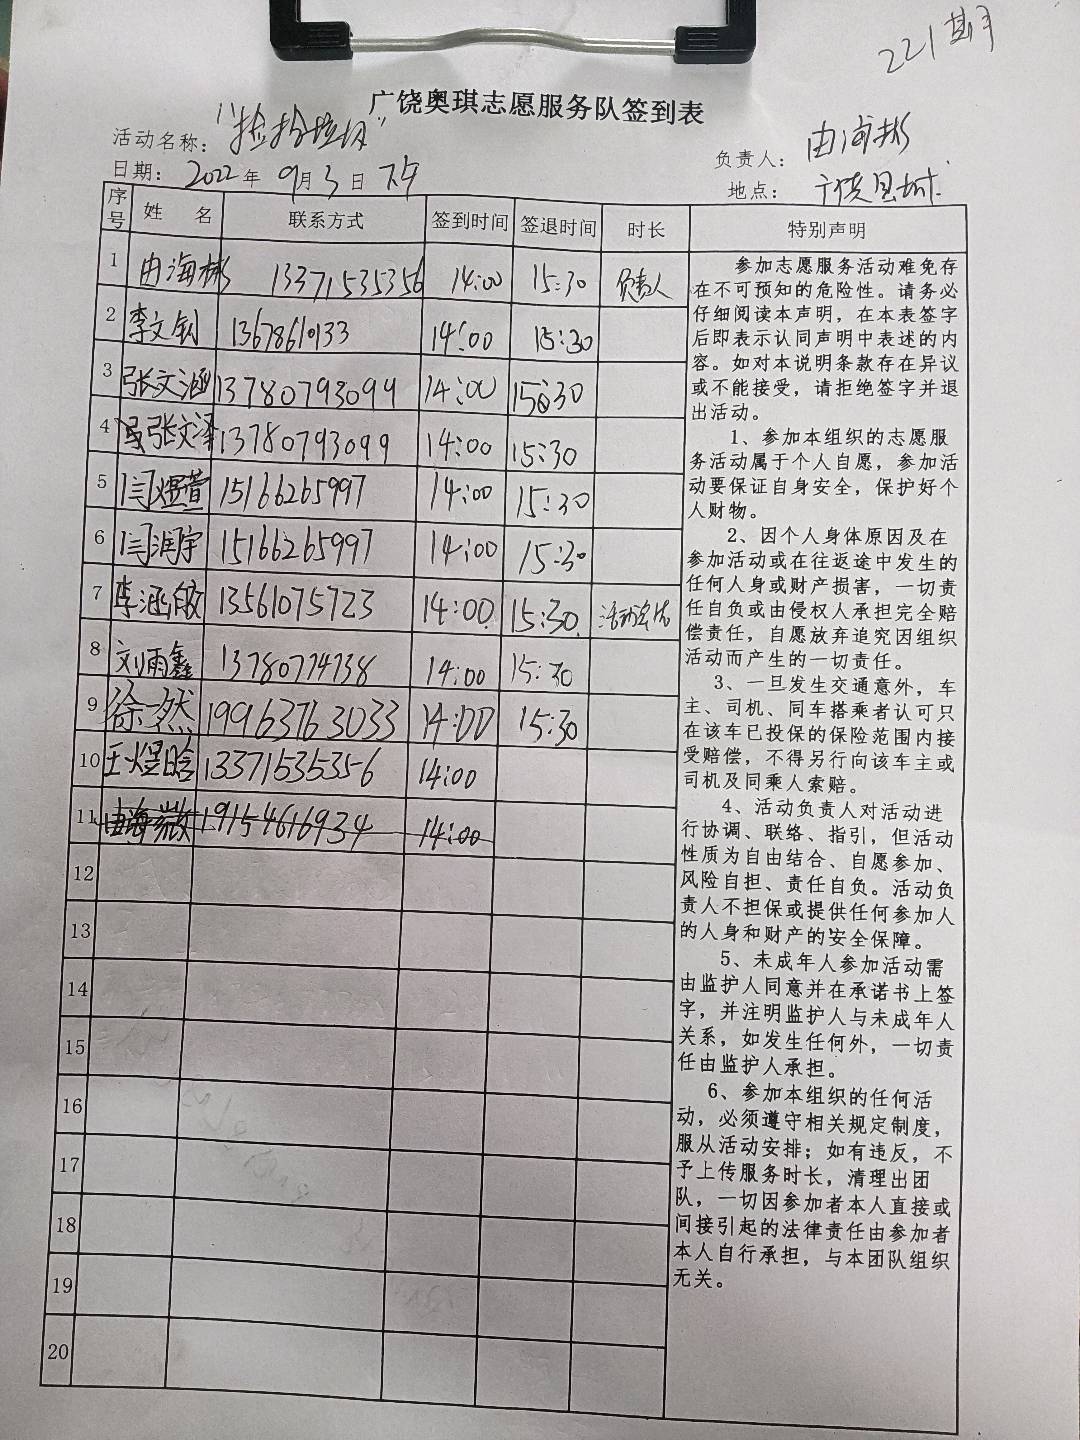 221期
广饶奥琪志愿服务队签到表
活动名称："捡拾垃圾"
负责人：由海彬
日期：2022年9月3日 下午
地点：广饶县城
序号 姓 名 联系方式 签到时间 签退时间 时长 特别声明
1 由海彬 13371535356 14:00 15:30 负责人
2 李文钊 13678610133 14:00 15:30
3 张文涵 13780793099 14:00 15:30
4 张文泽 13780793099 14:00 15:30
5 闫煜萱 15166265997 14:00 15:30
6 闫润宇 15166265997 14:00 15:30
7 李涵 13561075723 14:00 15:30
8 刘雨鑫 13780774738 14:00 15:30
9 徐一然 19963763033 14:00 15:30
10 王煜晗 13371535356 14:00
11 由海薇 19154616934 14:00
12
13
14
15
16
17
18
19
20
参加志愿服务活动难免存
在不可预知的危险性。请务必
仔细阅读本声明，在本表签字
后即表示认同声明中表述的内
容。如对本说明条款存在异议
或不能接受，请拒绝签字并退
出活动。
1、参加本组织的志愿服
务活动属于个人自愿，参加活
动要保证自身安全，保护好个
人财物。
2、因个人身体原因及在
参加活动或在往返途中发生的
任何人身或财产损害，一切责
任自负或由侵权人承担完全赔
偿责任，自愿放弃追究因组织
活动而产生的一切责任。
3、一旦发生交通意外，车
主、司机、同车搭乘者认可只
在该车已投保的保险范围内接
受赔偿，不得另行向该车主或
司机及同乘人索赔。
4、活动负责人对活动进
行协调、联络、指引，但活动
性质为自由结合、自愿参加、
风险自担、责任自负。活动负
责人不担保或提供任何参加人
的人身和财产的安全保障。
5、未成年人参加活动需
由监护人同意并在承诺书上签
字，并注明监护人与未成年人
关系，如发生任何外，一切责
任由监护人承担。
6、参加本组织的任何活
动，必须遵守相关规定制度，
服从活动安排；如有违反，不
予上传服务时长，清理出团
队，一切因参加者本人直接或
间接引起的法律责任由参加者
本人自行承担，与本团队组织
无关。